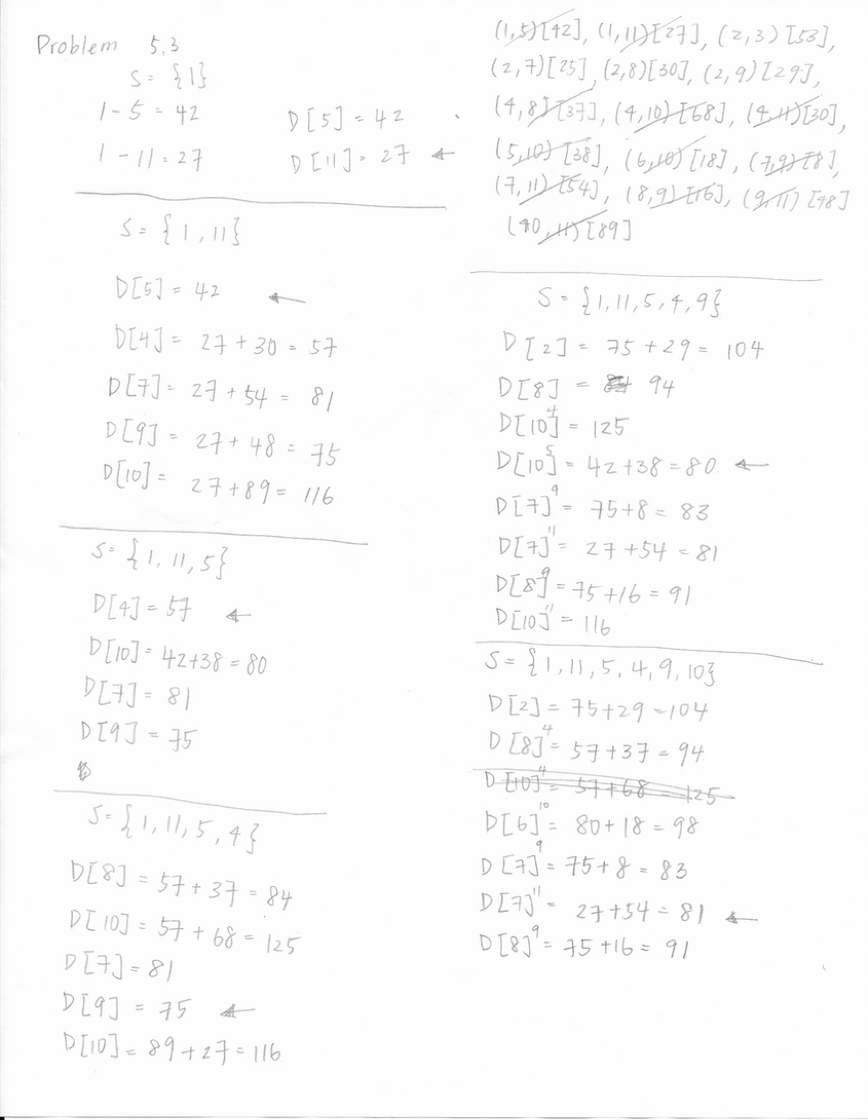 Problem 5.3
S = {1}
1 - 5 = 42
D[5] = 42
1 - 11 = 27
D[11] = 27 ←
S = {1, 11}
D[5] = 42 ←
D[4] = 27 + 30 = 57
D[7] = 27 + 54 = 81
D[9] = 27 + 48 = 75
D[10] = 27 + 89 = 116
S = {1, 11, 5}
D[4] = 57 ←
D[10] = 42+38 = 80
D[7] = 81
D[9] = 75
S = {1, 11, 5, 4}
D[8] = 57 + 37 = 84
D[10] = 57 + 68 = 125
D[7] = 81
D[9] = 75 ←
D[10] = 89 + 27 = 116
(1,5)[42], (1,11)[27], (2,3)[53],
(2,7)[25], (2,8)[30], (2,9)[29],
(4,8)[37], (4,10)[68], (4,11)[30],
(5,10)[38], (6,10)[18], (7,9)[8],
(7,11)[54], (8,9)[16], (9,11)[48]
(10,11)[89]
S = {1, 11, 5, 4, 9}
D[2] = 75 + 29 = 104
D[8] = 94
D[10]⁴ = 125
D[10]⁵ = 42+38 = 80 ←
D[7]⁹ = 75+8 = 83
D[7]¹¹ = 27 + 54 = 81
D[8]⁹ = 75+16 = 91
D[10]¹¹ = 116
S = {1, 11, 5, 4, 9, 10}
D[2] = 75+29 = 104
D[8]⁴ = 57 + 37 = 94
D[10]⁴ = 57+68 = 125
D[6]¹⁰ = 80 + 18 = 98
D[7]⁹ = 75 + 8 = 83
D[7]¹¹ = 27+54 = 81 ←
D[8]⁹ = 75 + 16 = 91